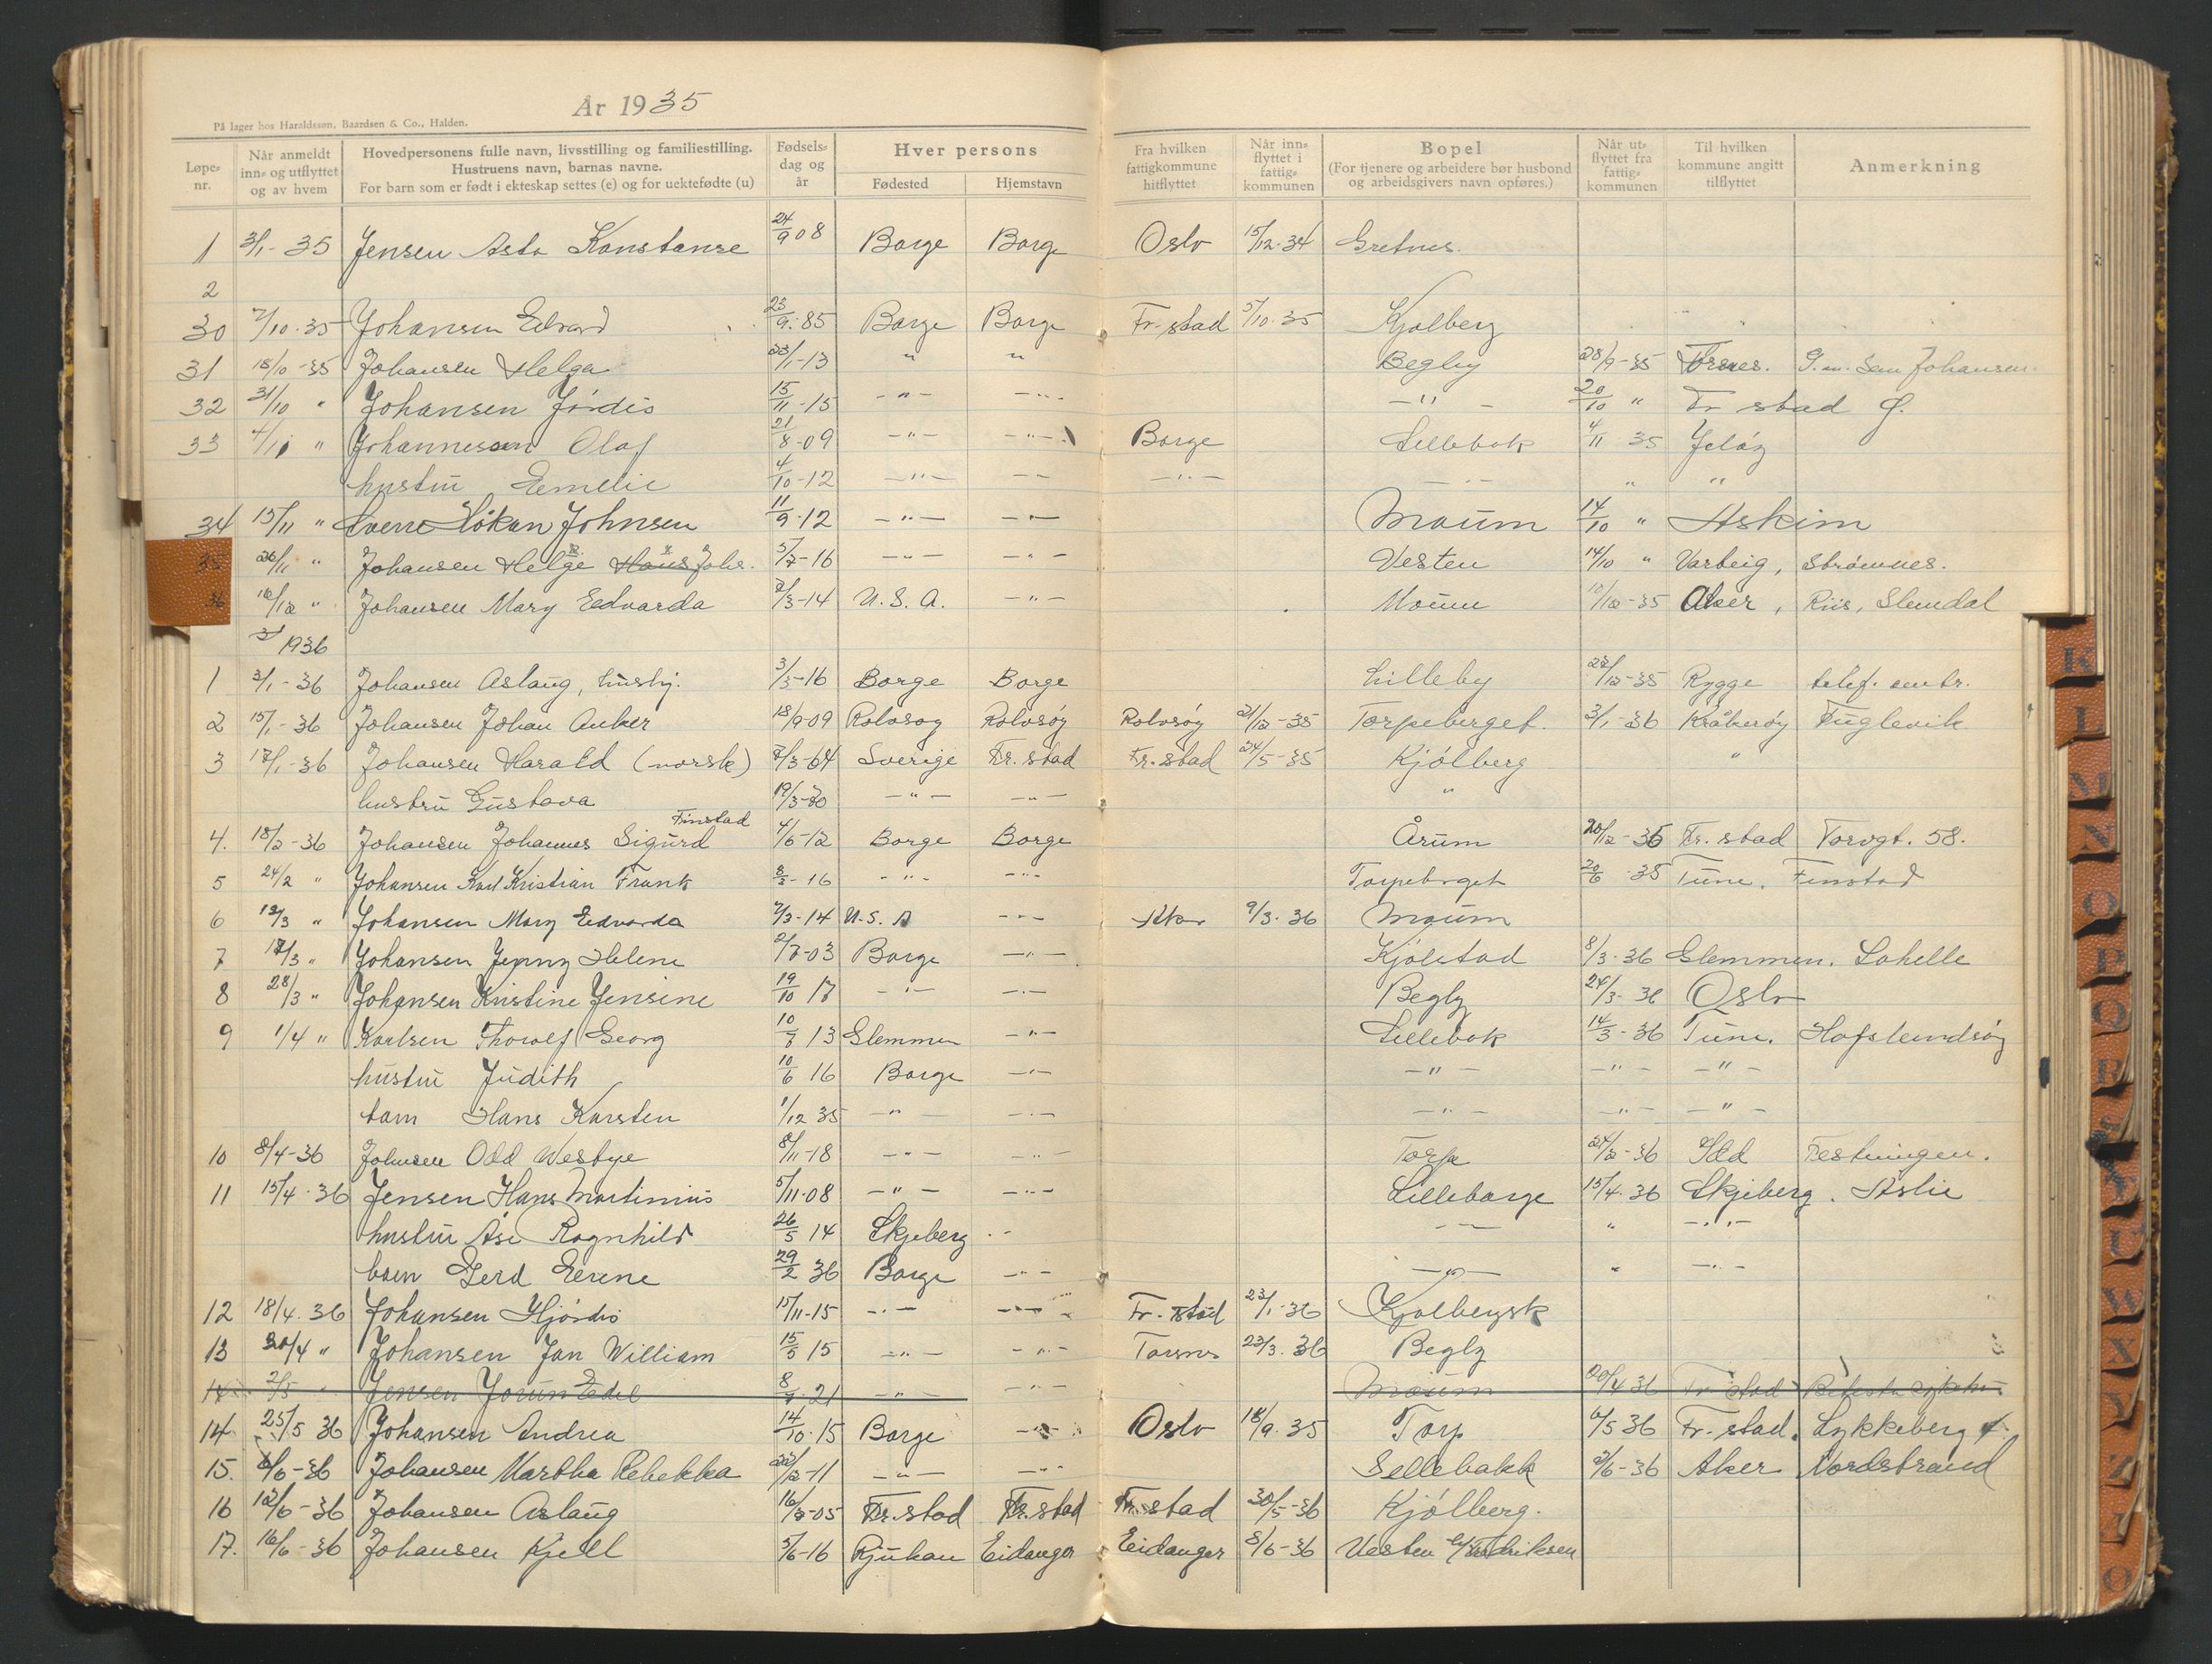 År 1935
På lager hos Haraldssøn, Baardsen & Co., Halden.
Løpe-nr. Når anmeldt inn- og utflyttet og av hvem Hovedpersonens fulle navn, livsstilling og familiestilling. Hustruens navn, barnas navne. For barn som er født i ekteskap settes (e) og for uektefødte (u) Fødsels-dag og år Hver persons Fødested Hjemstavn Fra hvilken fattigkommune hitflyttet Når inn-flyttet i fattig-kommunen Bopel (For tjenere og arbeidere bør husbond og arbeidsgivers navn opføres.) Når ut-flyttet fra fattig-kommunen Til hvilken kommune angitt tilflyttet Anmerkning
1 3/1-35 Jensen Asta Konstanse 24/9 08 Borge Borge Oslo 15/12-34 Gretnes.
2
30 7/10-35 Johansen Edvard 23/9-85 Borge Borge Fr.stad 5/10-35 Kjølberg
31 18/10-35 Johansen Helga 23/1-13 " " Begby 28/9-35 Torsnes. G.m. Johansen.
32 31/10 " Johansen Jórdis 15/11-15 -"- -"- -"- 20/10 " Fr stad
33 4/11 " Johannessen Olaf 21/8-09 -"- -"- Borge Sellebak 4/11 35 Jeløy
hustru Emelie 4/10-12 -"- -"- -"- -"- " "
34 15/11 " Sverre Håkan Johnsen 11/9-12 -"- -"- Moum 14/10 " Askim
35 26/11 " Johansen Helge Hans Johs. 5/7-16 -"- -"- Vesten 14/10 " Varteig, Strømnes.
36 16/12 " Johansen Mary Edvarda 7/3-14 U.S.A. -"- Moum 10/12-35 Aker, Riis, Slemdal
1936
1 3/1-36 Johansen Aslaug, hushj. 3/3-16 Borge Borge Lilleby 28/12-35 Rygge telef. centr.
2 15/1-36 Johansen Johan Anker 18/9-09 Rolvsøy Rolvsøy Rolvsøy 21/12-35 Torpeberget. 3/1-36 Kråkerøy Fuglevik
3 17/1-36 Johansen Harald (norsk) 7/3-64 Sverige Fr.stad Fr.stad 24/5-35 Kjølberg "
hustru Gustava 19/3-70 -"- -"- "
4. 18/2-36 Johansen Johannes Sigurd Finstad 4/6-12 Borge Borge Årum 20/12-35 Fr.stad Torvgt. 58.
5 24/2 " Johansen Karl Kristian Frank 8/2-16 -"- -"- Torpeberget 20/6 35 Tune. Finstad
6 12/3 " Johansen Mary Edvarda 7/3-14 U.S.A -"- Aker 9/3-36 Moum
7 17/3 " Johansen Jenny Helene 2/7-03 Borge -"- Kjølstad 8/3-36 Glemmen. Lahelle
8 28/3 " Johansen Kristine Jensine 19/10 17 -"- -"- Begby 24/3-36 Oslo
9 1/4 " Karlsen Thoralf Georg 10/7 13 Glemmen -"- Sellebak 14/3-36 Tune. Hafslundsøy
hustru Judith 10/6 16 Borge -"- -"- -"- -"-
barn Hans Karsten 1/12 35 -"- -"- -"- -"- -"-
10 8/4-36 Johnsen Odd Westye 8/11-18 -"- -"- Torp 24/2-36 Idd Festningen.
11 15/4-36 Jensen Hans Martinius 5/11-08 -"- -"- Lilleborge 15/4-36 Skjeberg. Aslie
hustru Åse Ragnhild 26/5 14 Skjeberg -"- -"- " -"-
barn Gerd Eirene 29/2 36 Borge -"- -"- " -"-
12 18/4-36 Johansen Hjørdis 15/11-15 -"- -"- Fr.stad 23/1-36 Kjølbergsk
13 20/4 " Johansen Jan William 15/5 15 -"- -"- Torsnes 23/3-36 Begby
14 2/5 " Jensen Jorun Edel 8/7-21 -"- -"- Moum 20/4 36 Fr.stad
14 25/5 36 Johansen Andrea 14/10-15 Borge -"- Oslo 18/9-35 Torp 6/5 36 Fr.stad. Lykkeberg
15. 6/6-36 Johansen Martha Rebekka 22/12-11 -"- -"- Sellebakk 2/6-36 Aker Nordstrand
16 12/6-36 Johansen Aslaug 16/3-05 Fr.stad Fr.stad Fr.stad 30/5-36 Kjølberg.
17. 16/6-36 Johansen Kjell 5/6-16 Rjukan Eidanger Eidanger 8/6-36 Vesten
K L M N O P R S T U V W X Y Z Æ Ø